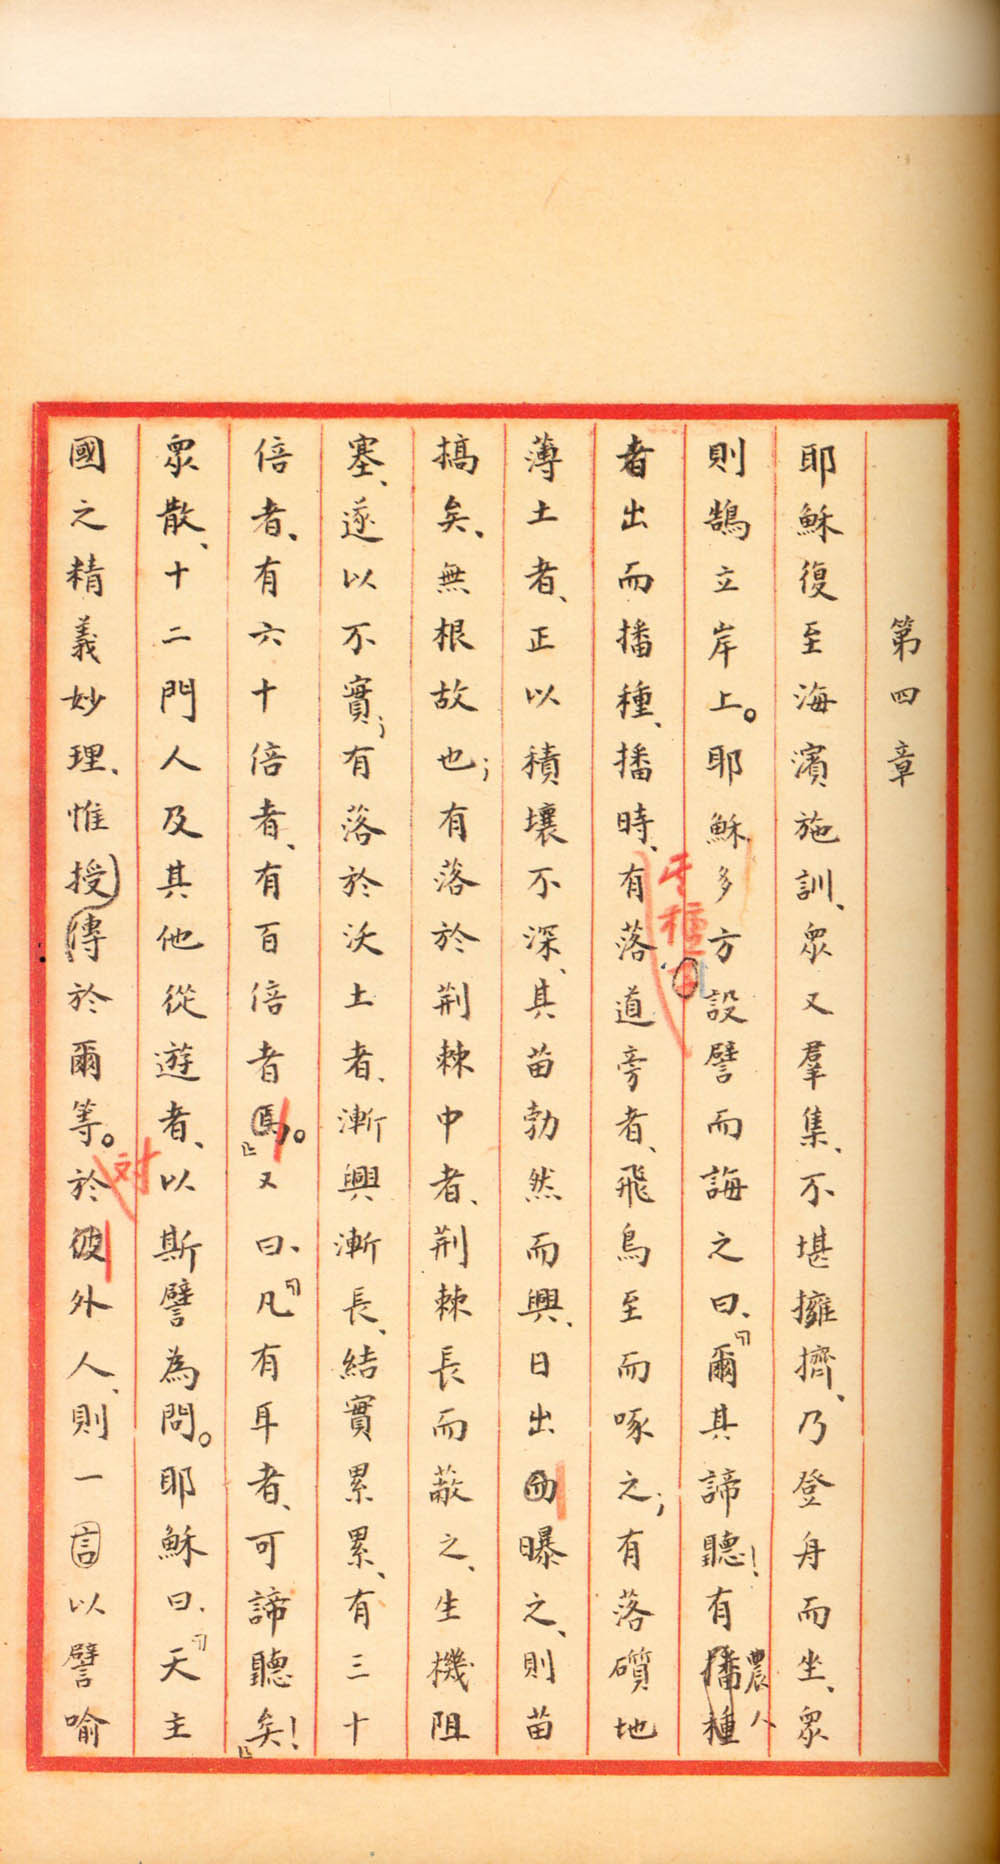 第四章
耶穌復至海濱施訓、眾又羣集、不堪擁擠、乃登舟而坐、眾
則鵠立岸上。耶穌多方設譬而誨之曰、「爾其諦聽！有播種農人
者出而播種、播時、有落道旁者、飛鳥至而啄之；有落磧地
薄土者、正以積壤不深、其苗勃然而興、日出而曝之、則苗
搞矣、無根故也；有落於荆棘中者、荆棘長而蔽之、生機阻
塞、遂以不實；有落於沃土者、漸興漸長、結實累累、有三十
倍者、有六十倍者、有百倍者焉。」又曰、「凡有耳者、可諦聽矣！」
眾散、十二門人及其他從遊者、以斯譬為問。耶穌曰、「天主
國之精義妙理、惟授傳於爾等。於對彼外人、則一言以譬喻